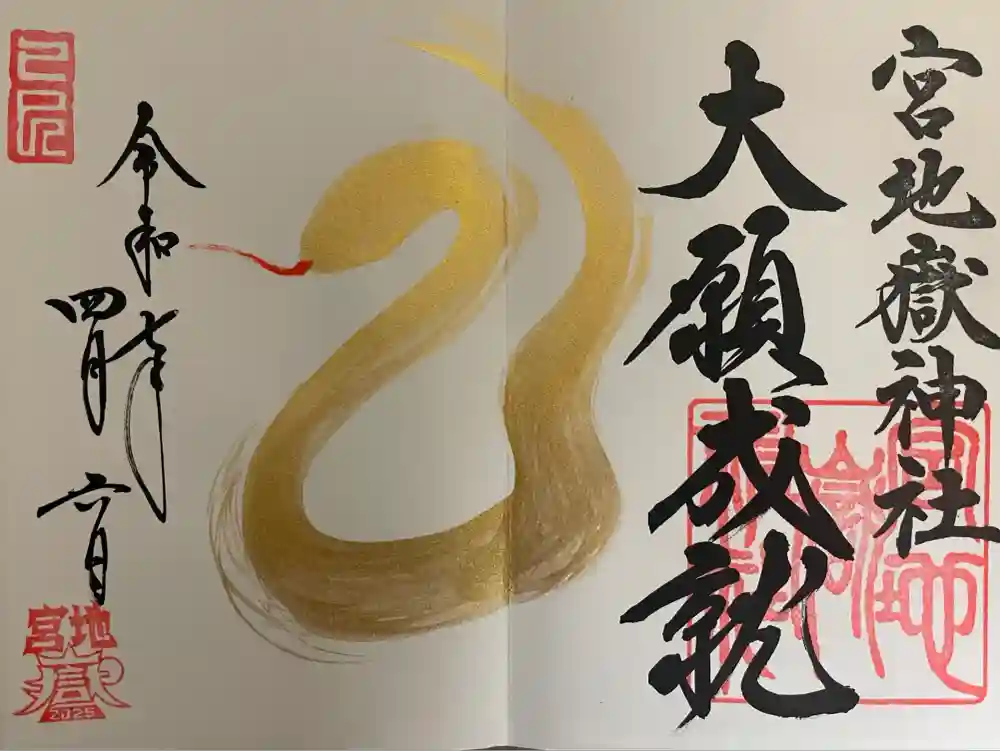 宮地嶽神社
大願成就
令和七年
四月六日
己巳
宮地
嶽
2025